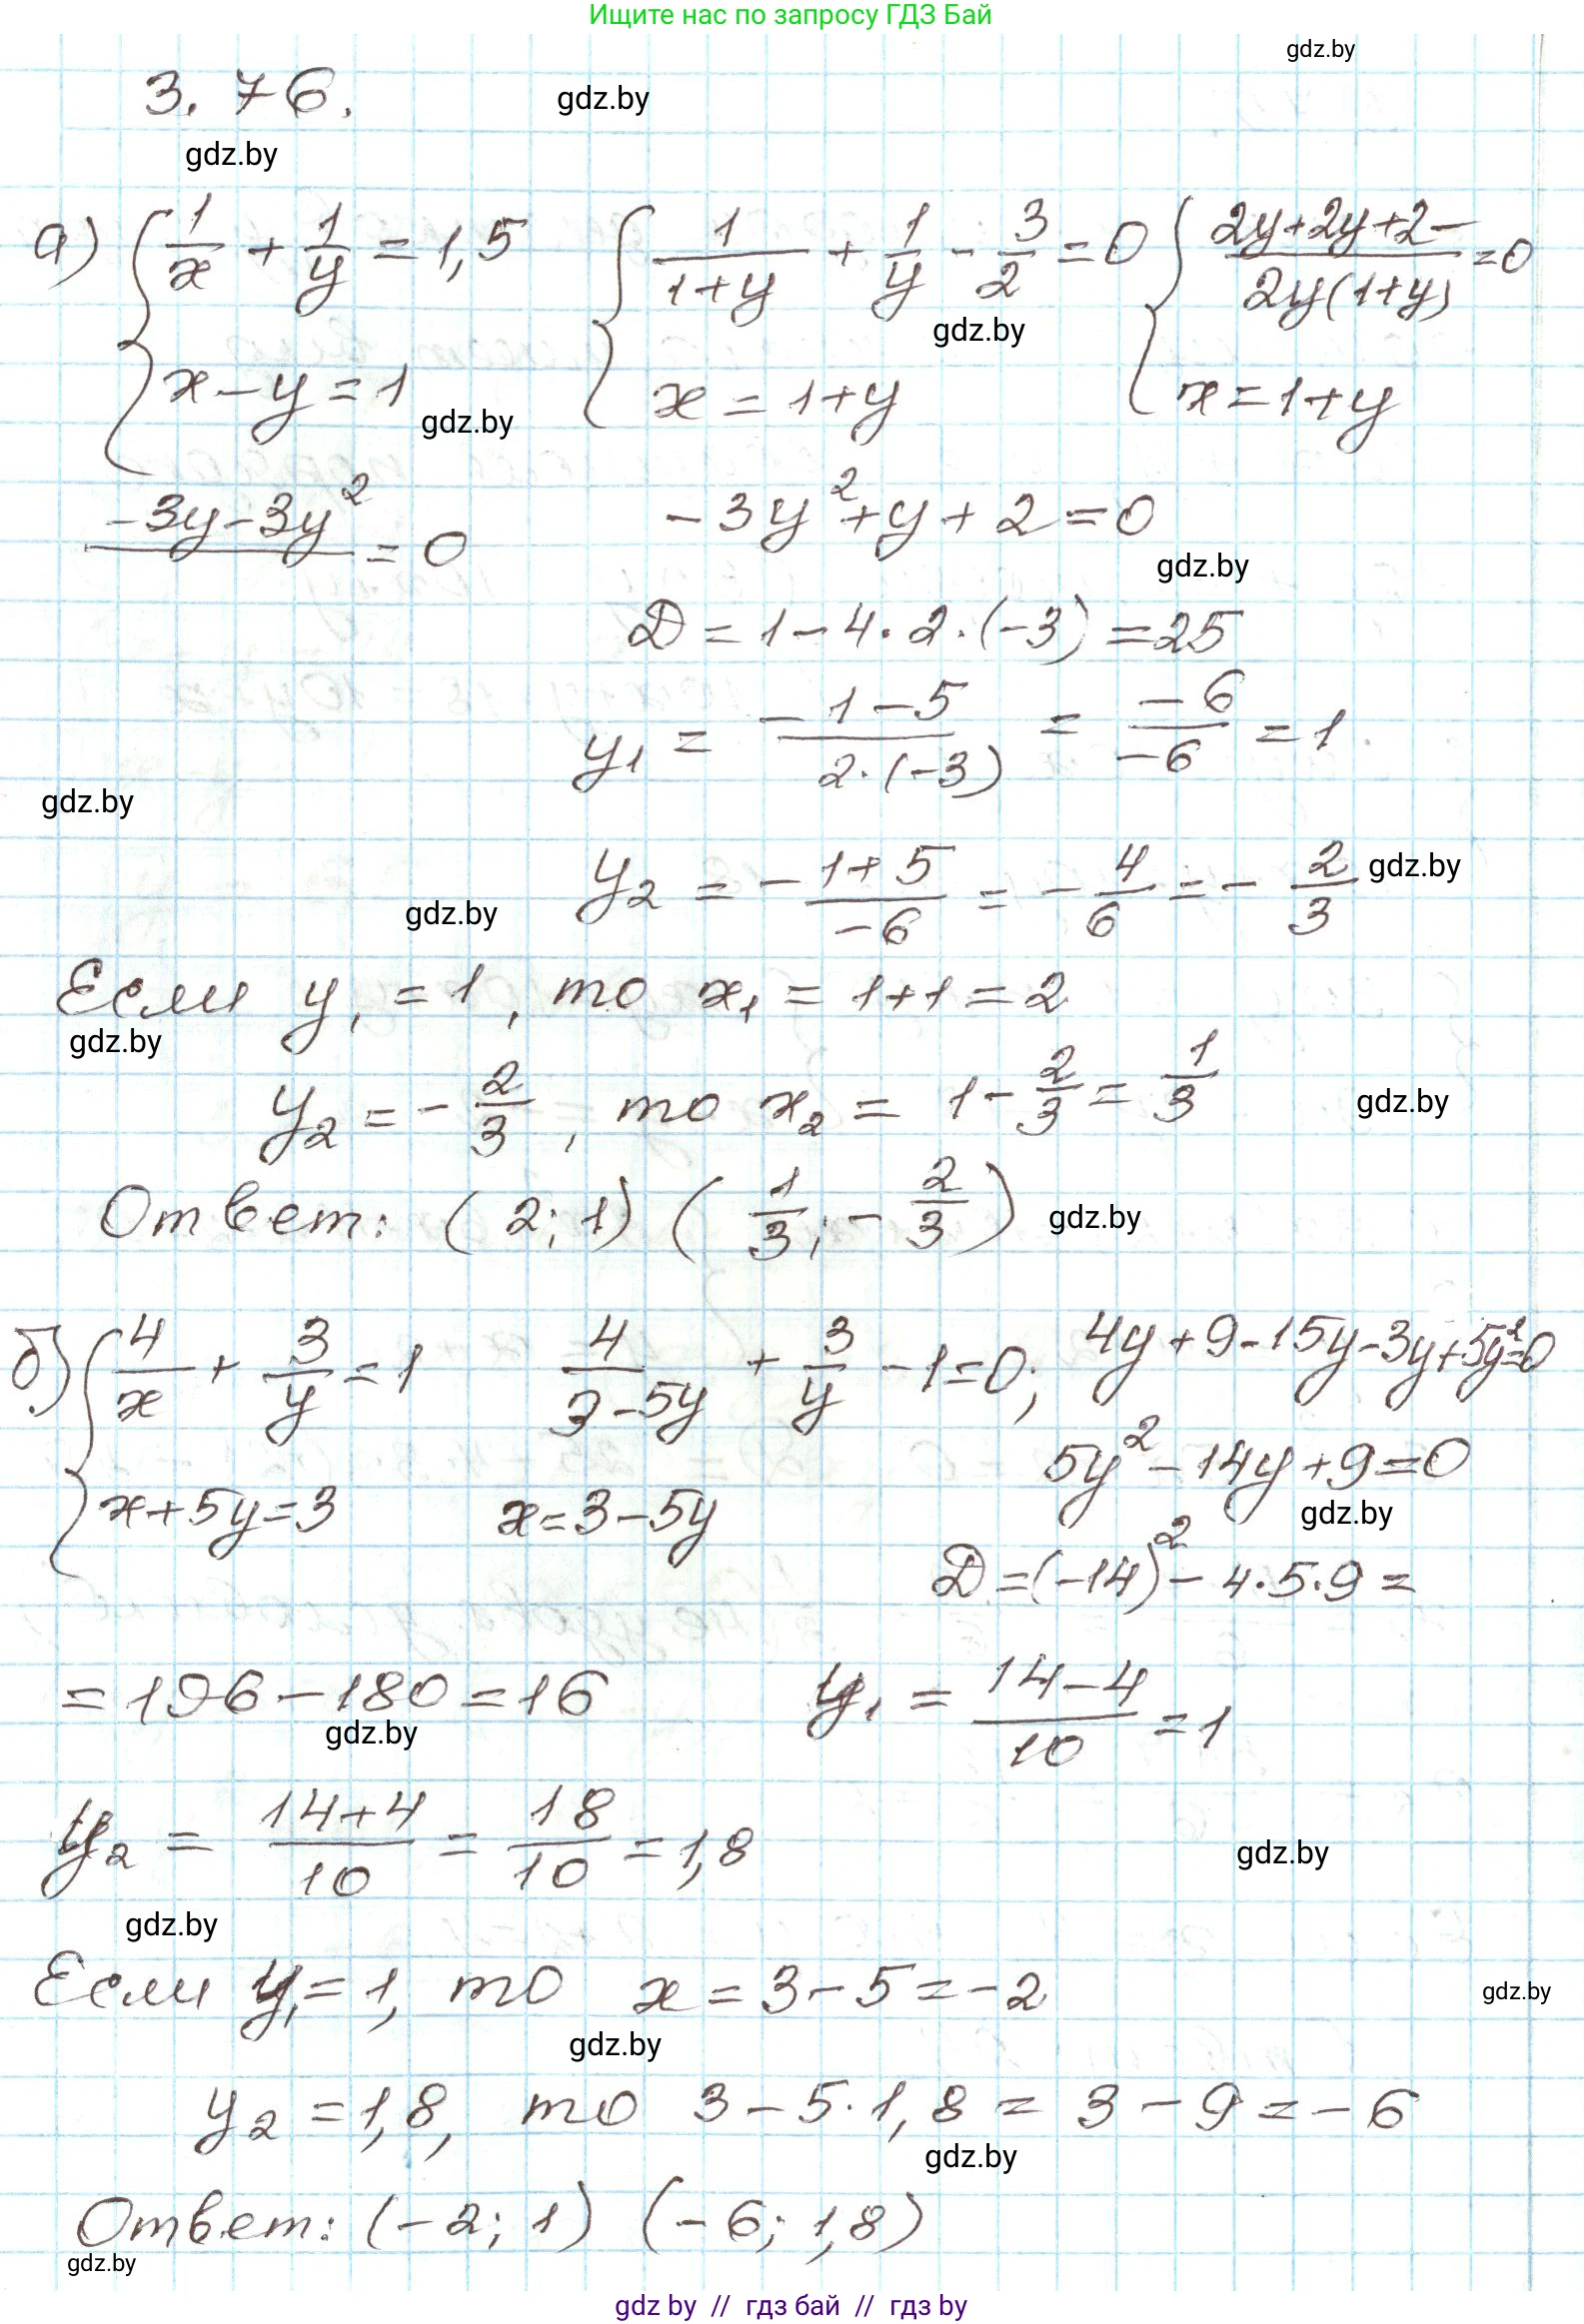 Ищите нас по запросу ГДЗ Бай
gdz.by
3.76.
gdz.by
gdz.by
а) { 1/x + 1/y = 1,5 { 1/(1+y) + 1/y - 3/2 = 0 { (2y+2y+2-)/(2y(1+y)) = 0
gdz.by
x - y = 1 x = 1+y x = 1+y
gdz.by
-3y-3y²/ = 0 -3y²+y+2=0
gdz.by
D = 1-4·2·(-3) = 25
y₁ = (-1-5)/(2·(-3)) = -6/-6 = 1
gdz.by
y₂ = - (1+5)/-6 = - 4/6 = - 2/3
gdz.by
gdz.by
Если y₁ = 1, то x₁ = 1+1 = 2
gdz.by
y₂ = - 2/3, то x₂ = 1 - 2/3 = 1/3
gdz.by
Ответ: (2; 1) (1/3; - 2/3)
gdz.by
б) { 4/x + 3/y = 1 4/(3-5y) + 3/y - 1 = 0; 4y+9-15y-3y+5y²=0
5y²-14y+9=0
x+5y=3 x=3-5y
gdz.by
D = (-14)² - 4·5·9 =
= 196-180 = 16 y₁ = (14-4)/10 = 1
gdz.by
y₂ = (14+4)/10 = 18/10 = 1,8
gdz.by
gdz.by
Если y₁ = 1, то x = 3-5 = -2
gdz.by
gdz.by
y₂ = 1,8, то 3-5·1,8 = 3-9 = -6
gdz.by
Ответ: (-2; 1) (-6; 1,8)
gdz.by
gdz by // гдз бай // гдз by